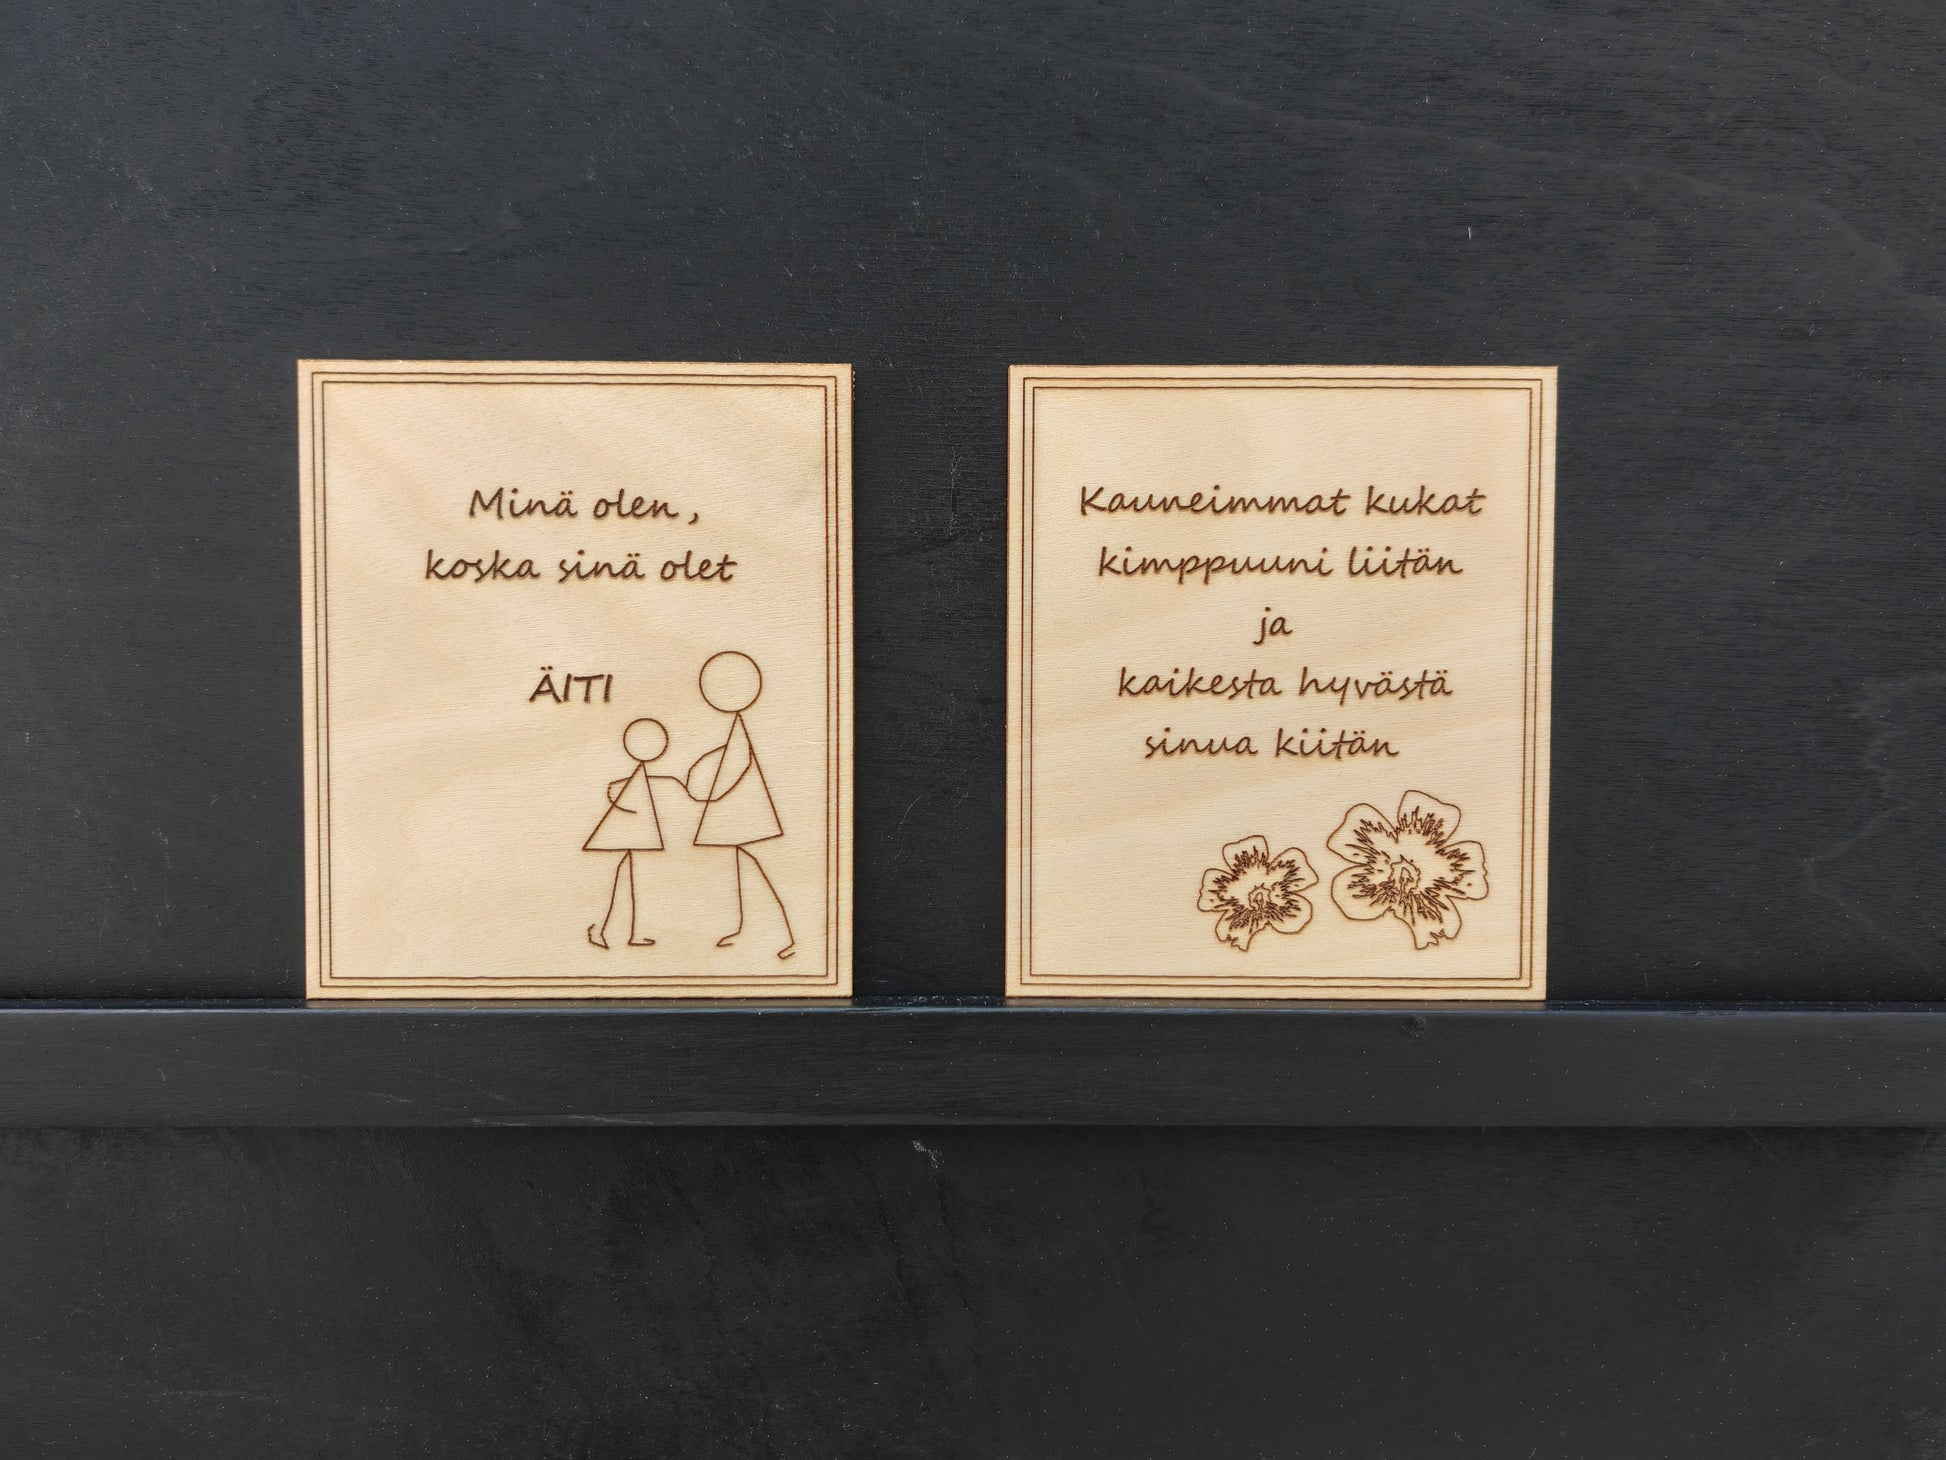 Minä olen,
koska sinä olet
ÄITI
Kauneimmat kukat
kimppuuni liitän
ja
kaikesta hyvästä
sinua kiitän